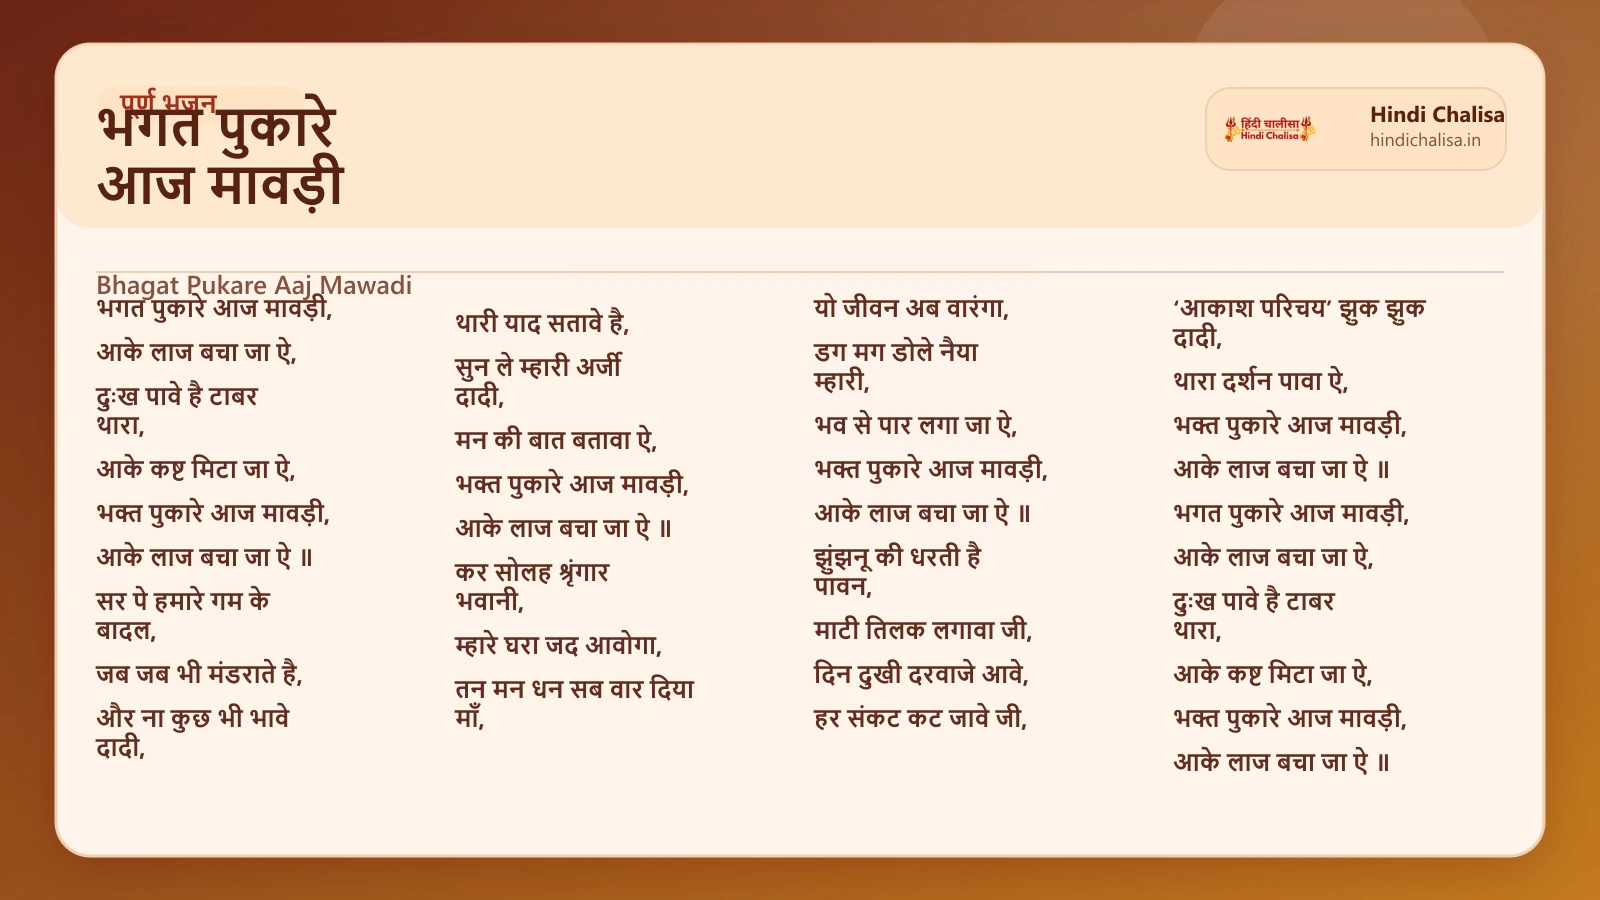 पूर्ण भजन
भगत पुकारे
आज मावड़ी
हिंदी चालीसा
Hindi Chalisa
Hindi Chalisa
hindichalisa.in
Bhagat Pukare Aaj Mawadi
भगत पुकारे आज मावड़ी,
आके लाज बचा जा ऐ,
दुःख पावे है टाबर
थारा,
आके कष्ट मिटा जा ऐ,
भक्त पुकारे आज मावड़ी,
आके लाज बचा जा ऐ ॥
सर पे हमारे गम के
बादल,
जब जब भी मंडराते है,
और ना कुछ भी भावे
दादी,
थारी याद सतावे है,
सुन ले म्हारी अर्जी
दादी,
मन की बात बतावा ऐ,
भक्त पुकारे आज मावड़ी,
आके लाज बचा जा ऐ ॥
कर सोलह श्रृंगार
भवानी,
म्हारे घरा जद आवोगा,
तन मन धन सब वार दिया
माँ,
यो जीवन अब वारंगा,
डग मग डोले नैया
म्हारी,
भव से पार लगा जा ऐ,
भक्त पुकारे आज मावड़ी,
आके लाज बचा जा ऐ ॥
झुंझनू की धरती है
पावन,
माटी तिलक लगावा जी,
दिन दुखी दरवाजे आवे,
हर संकट कट जावे जी,
‘आकाश परिचय’ झुक झुक
दादी,
थारा दर्शन पावा ऐ,
भक्त पुकारे आज मावड़ी,
आके लाज बचा जा ऐ ॥
भगत पुकारे आज मावड़ी,
आके लाज बचा जा ऐ,
दुःख पावे है टाबर
थारा,
आके कष्ट मिटा जा ऐ,
भक्त पुकारे आज मावड़ी,
आके लाज बचा जा ऐ ॥